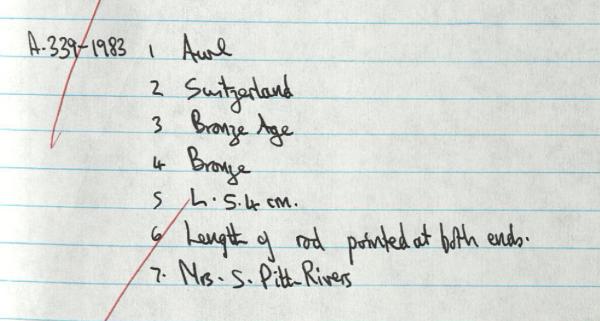 A.339-1983 1 Awl
2 Switzerland
3 Bronze Age
4 Bronze
5 L. 5.4 cm.
6 Length of rod pointed at both ends.
7. Mrs. S. Pitt-Rivers